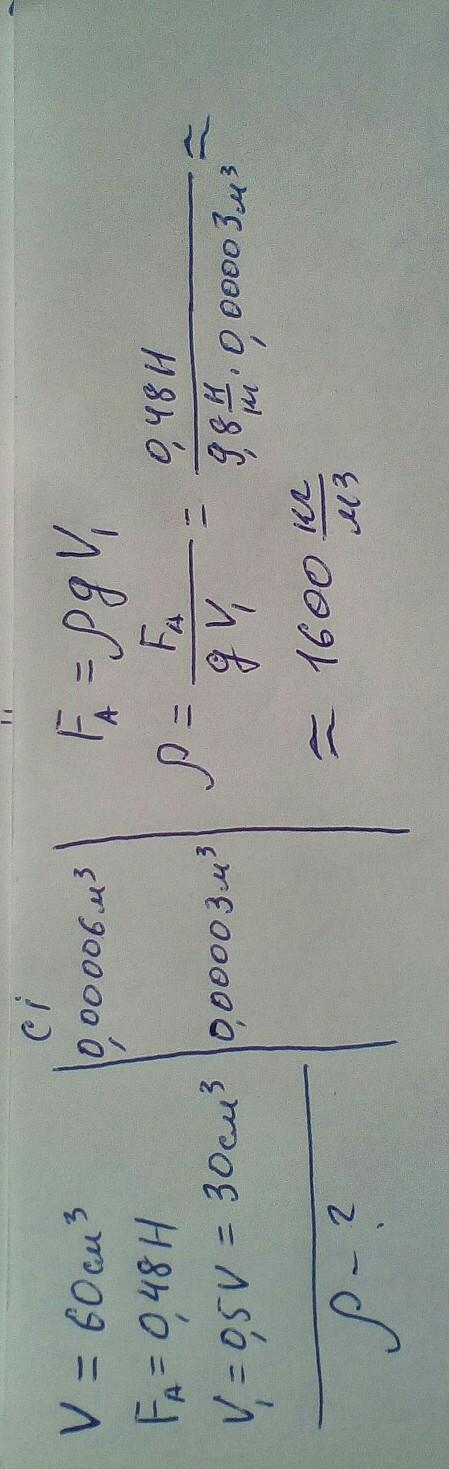 V = 60 см³
F_A = 0,48 Н
V₁ = 0,5V = 30 см³
ρ – ?
СІ
0,00006 м³
0,00003 м³
F_A = ρgV₁
ρ = F_A / gV₁ = 0,48 Н / 9,8 Н/кг · 0,00003 м³ ≈
≈ 1600 кг/м³